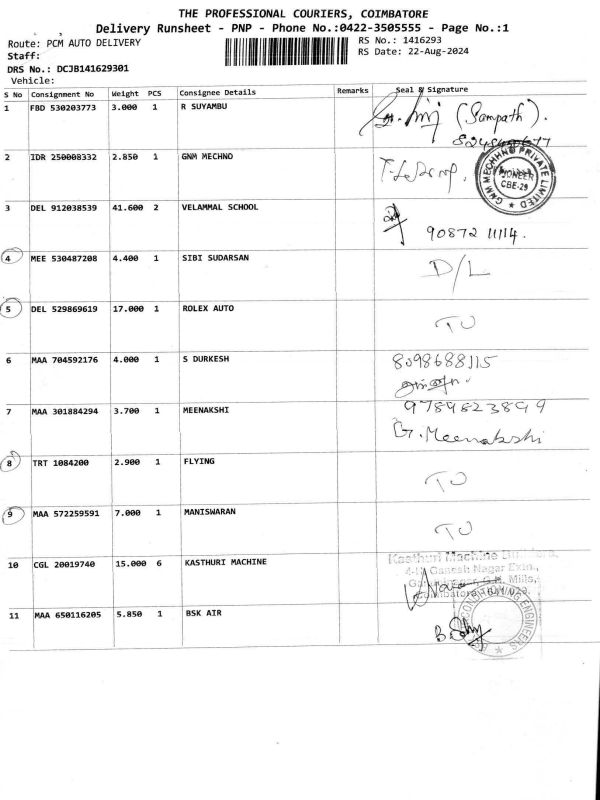 THE PROFESSIONAL COURIERS, COIMBATORE
Delivery Runsheet - PNP - Phone No.:0422-3505555 - Page No.:1
Route: PCM AUTO DELIVERY
RS No.: 1416293
Staff:
RS Date: 22-Aug-2024
DRS No.: DCJB141629301
Vehicle:
S No Consignment No Weight PCS Consignee Details Remarks Seal & Signature
1 FBD 530203773 3.000 1 R SUYAMBU (Sampath).
2 IDR 250008332 2.850 1 GNM MECHNO
GNM MECHHNO PRIVATE LIMITED
PIONEER
CBE-29
3 DEL 912038539 41.600 2 VELAMMAL SCHOOL
90872 11114.
4 MEE 530487208 4.400 1 SIBI SUDARSAN D/L
5 DEL 529869619 17.000 1 ROLEX AUTO TO
6 MAA 704592176 4.000 1 S DURKESH 8098688115
7 MAA 301884294 3.700 1 MEENAKSHI 9789823899
G. Meenakshi
8 TRT 1084200 2.900 1 FLYING TO
9 MAA 572259591 7.000 1 MANISWARAN TO
10 CGL 20019740 15.000 6 KASTHURI MACHINE
Kasthuri Machine Builders,
Ganesh Nagar Extn.,
Mills,
Coimbatore
11 MAA 650116205 5.850 1 BSK AIR
CONDITIONING ENGINEERS